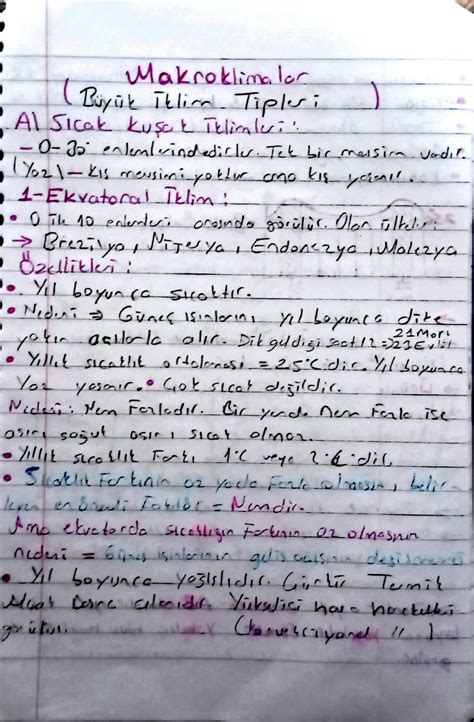 Makroklimalar
( Büyük İklim Tipleri )
A) Sıcak Kuşak İklimleri:
- 0-30° enlemlerindedirler. Tek bir mevsim vardır.
(Yaz) - Kış mevsimi yoktur ama kış yaşanır.
1-Ekvatoral İklim:
• 0 ile 10 enlemleri arasında görülür. Olan ülkeler:
→ Brezilya, Nijerya, Endonezya, Malezya
Özellikleri:
• Yıl boyunca sıcaktır.
• Nedeni ⇒ Güneş ışınlarını yıl boyunca dike
yakın açılarla alır. Dik geldiği saat 12 ⇒ 21 Mart 23 Eylül
• Yıllık sıcaklık ortalaması = 25°C dir. Yıl boyunca
Yaz yaşanır. • Çok sıcak değildir.
Nedeni: Nem Fazladır. Bir yerde Nem Fazla ise
aşırı soğuk aşırı sıcak olmaz.
• Yıllık sıcaklık Farkı 1°C veya 2°C dir.
• Sıcaklık Farkının az yada Fazla olmasını, belir-
leyen en önemli Faktör = Nemdir.
Ama ekvatorda sıcaklığın Farkının az olmasının
nedeni = Güneş ışınlarının geliş açısının değişmemesi
• Yıl boyunca yağışlıdır. Çünkü Termik
Alçak Basınç alanıdır. Yükselici hava hareketleri
görülür. (konveksiyonel //)